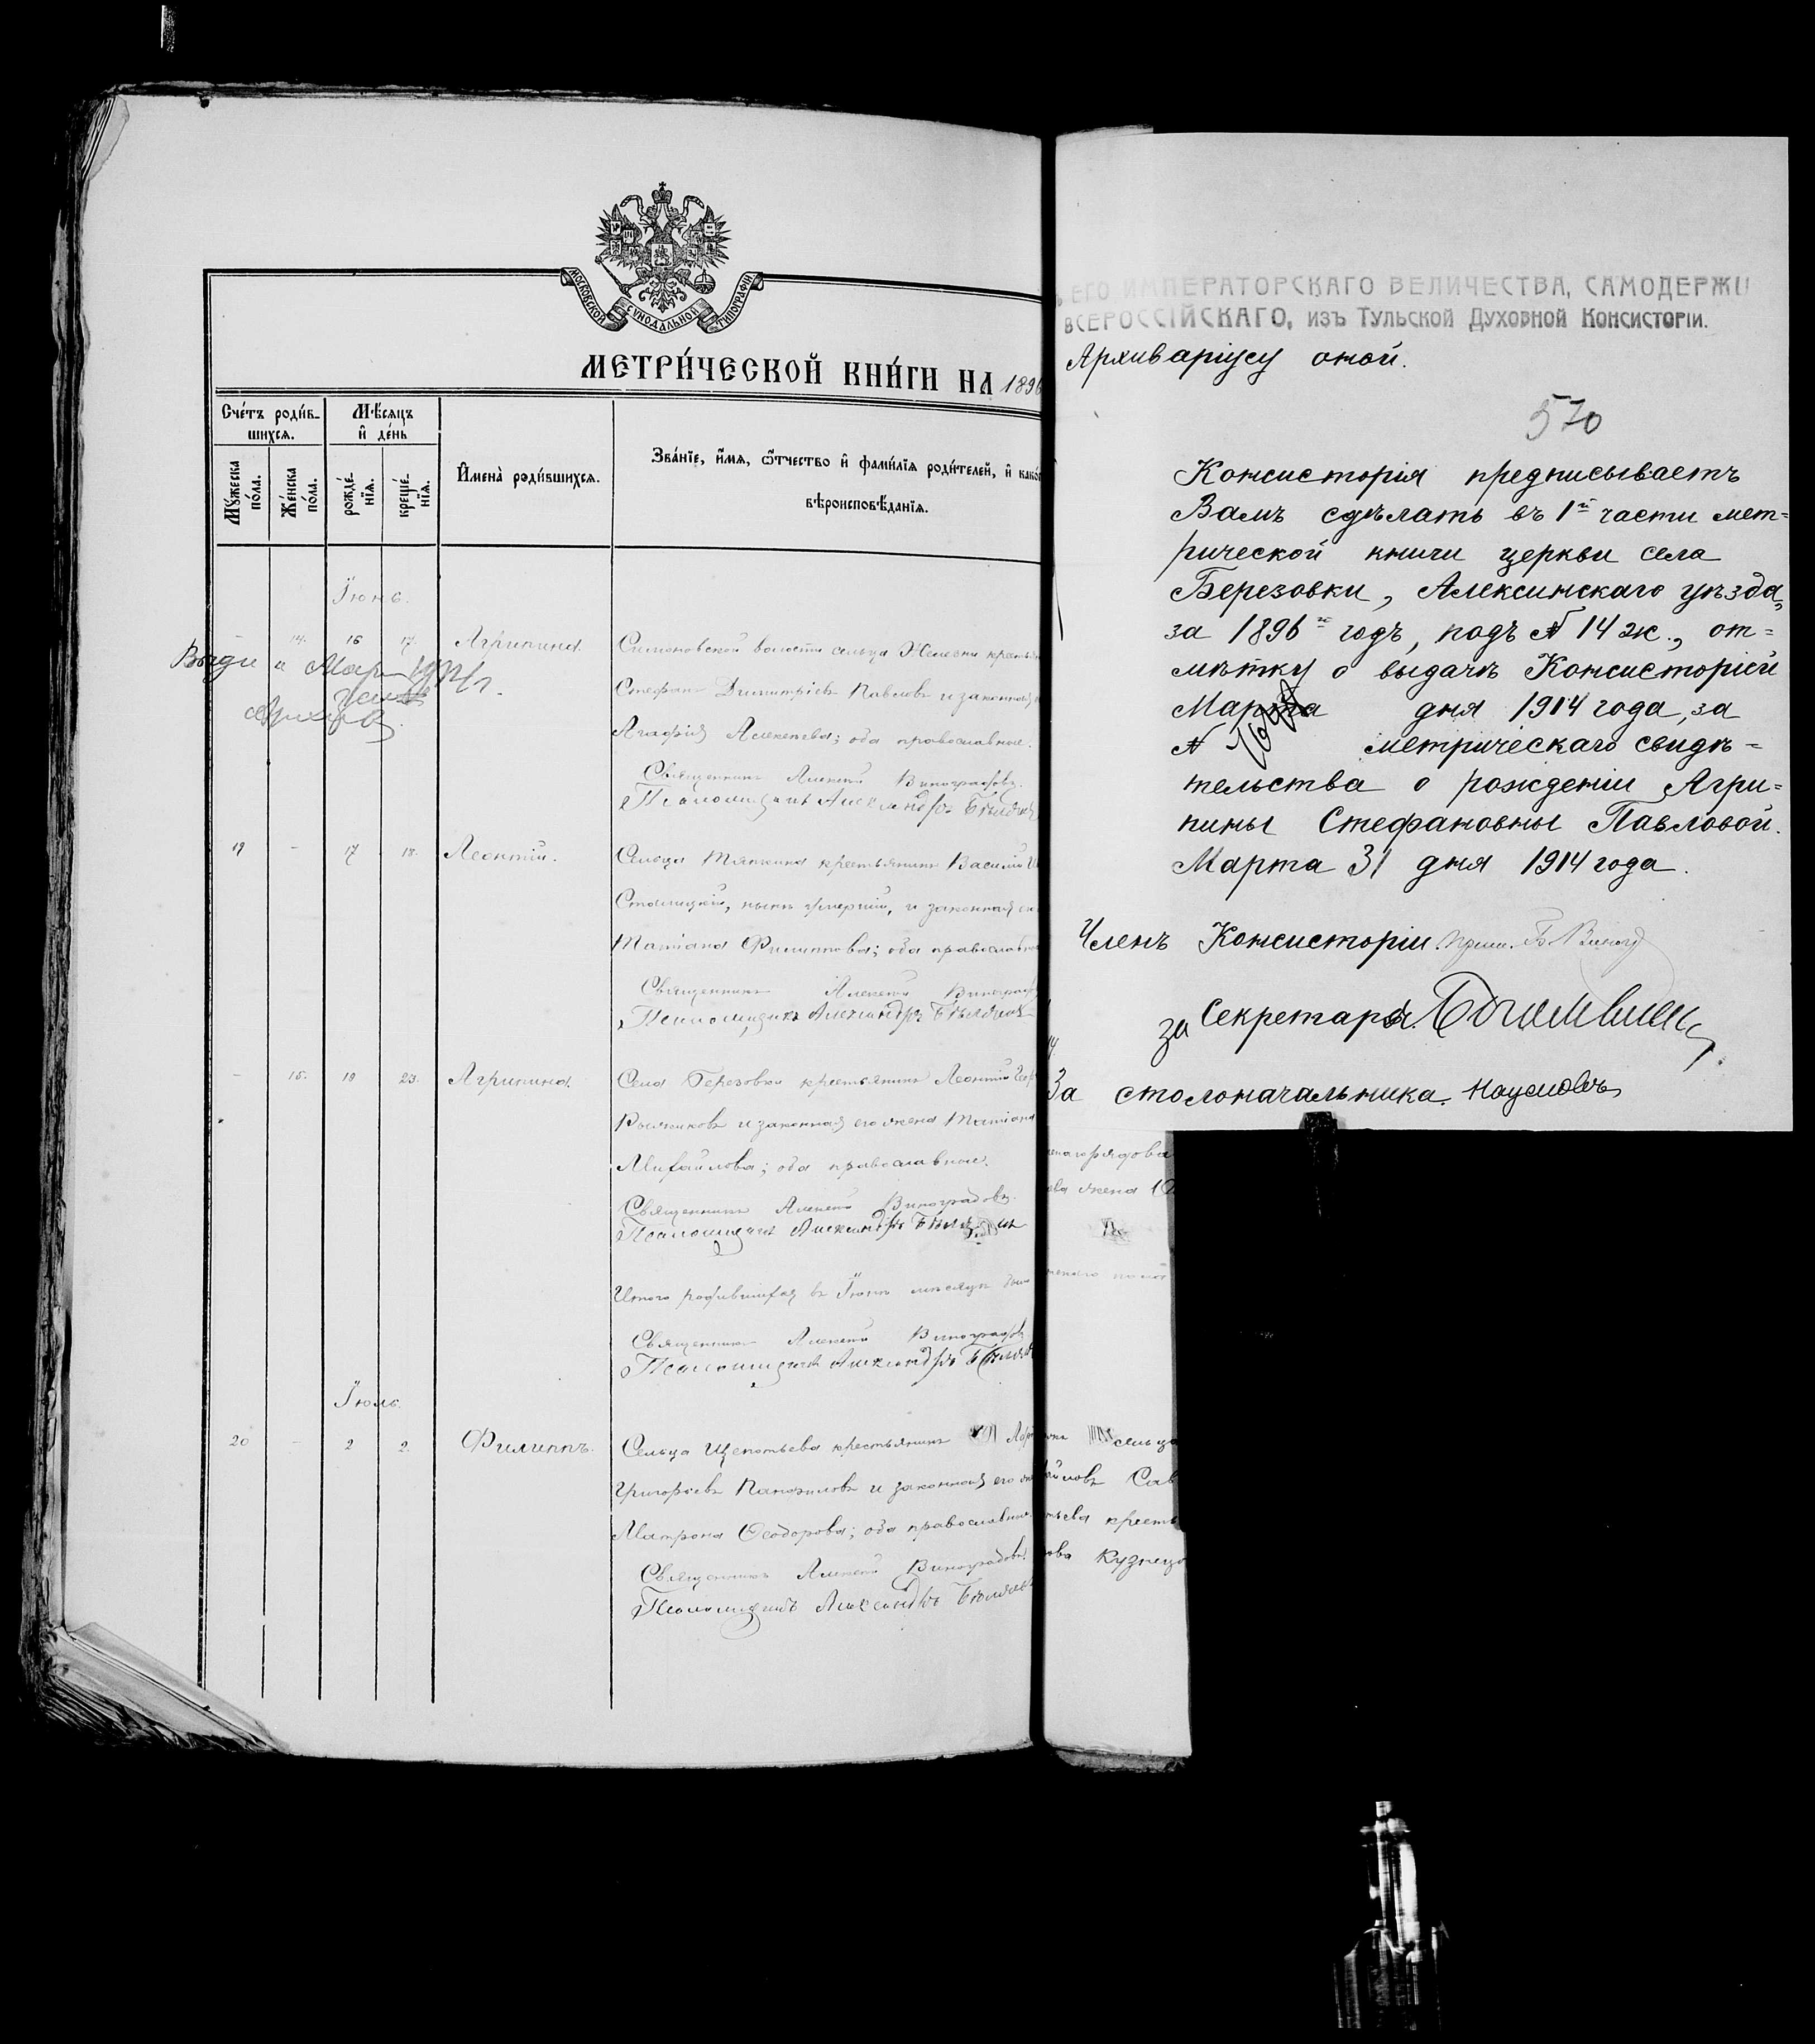 МОСКОВСКОЙ СУНОДАЛЬНОЙ ТИПОГРАФІИ
МЕТРИ́ЧЕСКОЙ КНИ́ГИ НА 1896
Сче́тъ роди́в-
шихся.
Мѣсяцъ
и де́нь
Му́жеска
по́ла.
Же́нска
по́ла.
рожде́-
нїя.
креще́-
нїя.
Имена̀ роди́вшихся.
Зва́нїе, и́мя, ѻ́тчество и фами́лїа роди́телей, и како́
вѣроисповѣ́данїя.
Іюнь.
- 14. 16 17. Агрипина.
Симоновской волости сельца Железни крестьян
Стефан Димитріевъ Павловъ и законная
Агафія Алексеева; оба православные.
Священникъ Алексей Виноградовъ.
Псаломщикъ Александръ
19 - 17 18. Леонтій.
Сельца крестьянинъ Василій
нынѣ умершій, и законная
Татіана Филиппова; оба православн
Священникъ Алексей Виноград
Псаломщикъ Александръ
- 15. 19 23. Агрипина.
Села Березовки крестьянинъ Леонтій
и законная его жена Татіана
Михайлова; оба православные.
Священникъ Алексей Виноградовъ.
Псаломщикъ Александръ
Итого родившихся въ Іюнѣ мѣсяцѣ
Священникъ Алексей Виноградовъ
Псаломщикъ Александръ
Іюль.
20 - 2 2. Филиппъ.
Сельца Щепотьева крестьянинъ
Григорьевъ Панфиловъ и законная его
Матрона Ѳеодорова; оба православные
Священникъ Алексей Виноградовъ.
Псаломщикъ Александръ
ЕГО ИМПЕРАТОРСКАГО ВЕЛИЧЕСТВА, САМОДЕРЖЦ
ВСЕРОССІЙСКАГО, ИЗЪ ТУЛЬСКОЙ ДУХОВНОЙ КОНСИСТОРІИ.
Архиваріусу оной.
570
Консисторія предписываетъ
Вамъ сдѣлать въ 1й части мет=
рической книги церкви села
Березовки, Алексинскаго уѣзда,
за 1896й годъ, подъ № 14 ж., от=
мѣтку о выдачѣ Консисторіей
Марта дня 1914 года, за
№ метрическаго свидѣ=
тельства о рожденіи Агри=
пины Стефановны Павловой.
Марта 31 дня 1914 года.
Членъ Консисторіи.
за Секретаря.
За столоначальника. Наумовъ
сельца
Сав
крестья
Кузнецо